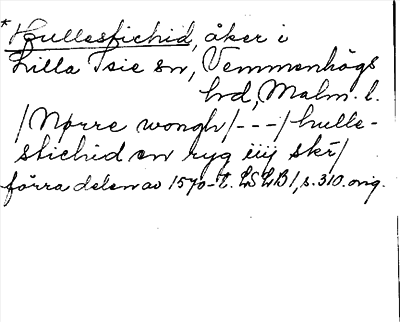 *Hullestichid, åker i
Lilla Isie sn, Vemmenhögs
hd, Malm. l.
/Nørre wongh/---/hulle-
stichid en ryg iiij skr/
förra delen av 1570-t. LSLB 1, s. 310. orig.